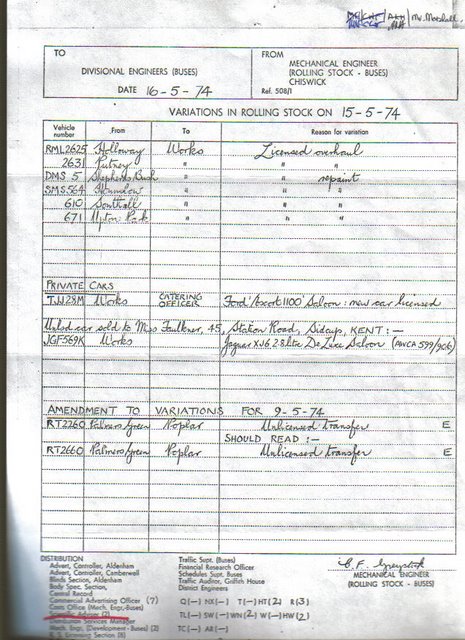 Mr. Marshall.
TO
DIVISIONAL ENGINEERS (BUSES)
DATE 16-5-74
FROM
MECHANICAL ENGINEER
(ROLLING STOCK - BUSES)
CHISWICK
Ref. 508/1
VARIATIONS IN ROLLING STOCK ON 15-5-74
Vehicle number From To Reason for variation
RML2625 Holloway Works Licensed overhaul
2631 Putney " " "
DMS 5 Shepherds Bush " " repaint
SMS 564 Hounslow " " "
610 Southall " " "
671 Upton Park " " "
PRIVATE CARS
TJJ128M Works CATERING OFFICER Ford 'Escort 1100' Saloon: new car licensed
Unlsd car sold to Miss Faulkner, 45, Station Road, Sidcup, KENT:—
JGF569K Works Jaguar XJ6 2.8 litre De Luxe Saloon (AWCA 599/906)
AMENDMENT TO VARIATIONS FOR 9-5-74
RT2260 Palmers Green Poplar Unlicensed Transfer E
SHOULD READ:—
RT2660 Palmers Green Poplar Unlicensed Transfer E
MECHANICAL ENGINEER
(ROLLING STOCK - BUSES)
DISTRIBUTION
Advert. Controller, Aldenham
Advert. Controller, Camberwell
Blinds Section, Aldenham
Body Spec. Section,
Central Record
Commercial Advertising Officer (7)
Costs Office (Mech. Engr.-Buses)
Scientific Adviser (2)
Distribution Services Manager
Mech. Engr. (Development-Buses) (2)
B.S. Licensing Section (8)
Traffic Supt. (Buses)
Financial Research Officer
Schedules Supt. Buses
Traffic Auditor, Griffith House
District Engineers
Q(—) NX(—) T(—) HT(2) R(3)
TL(—) SW(—) WN(2) W(—) HW(2)
TC(—) AR(—)